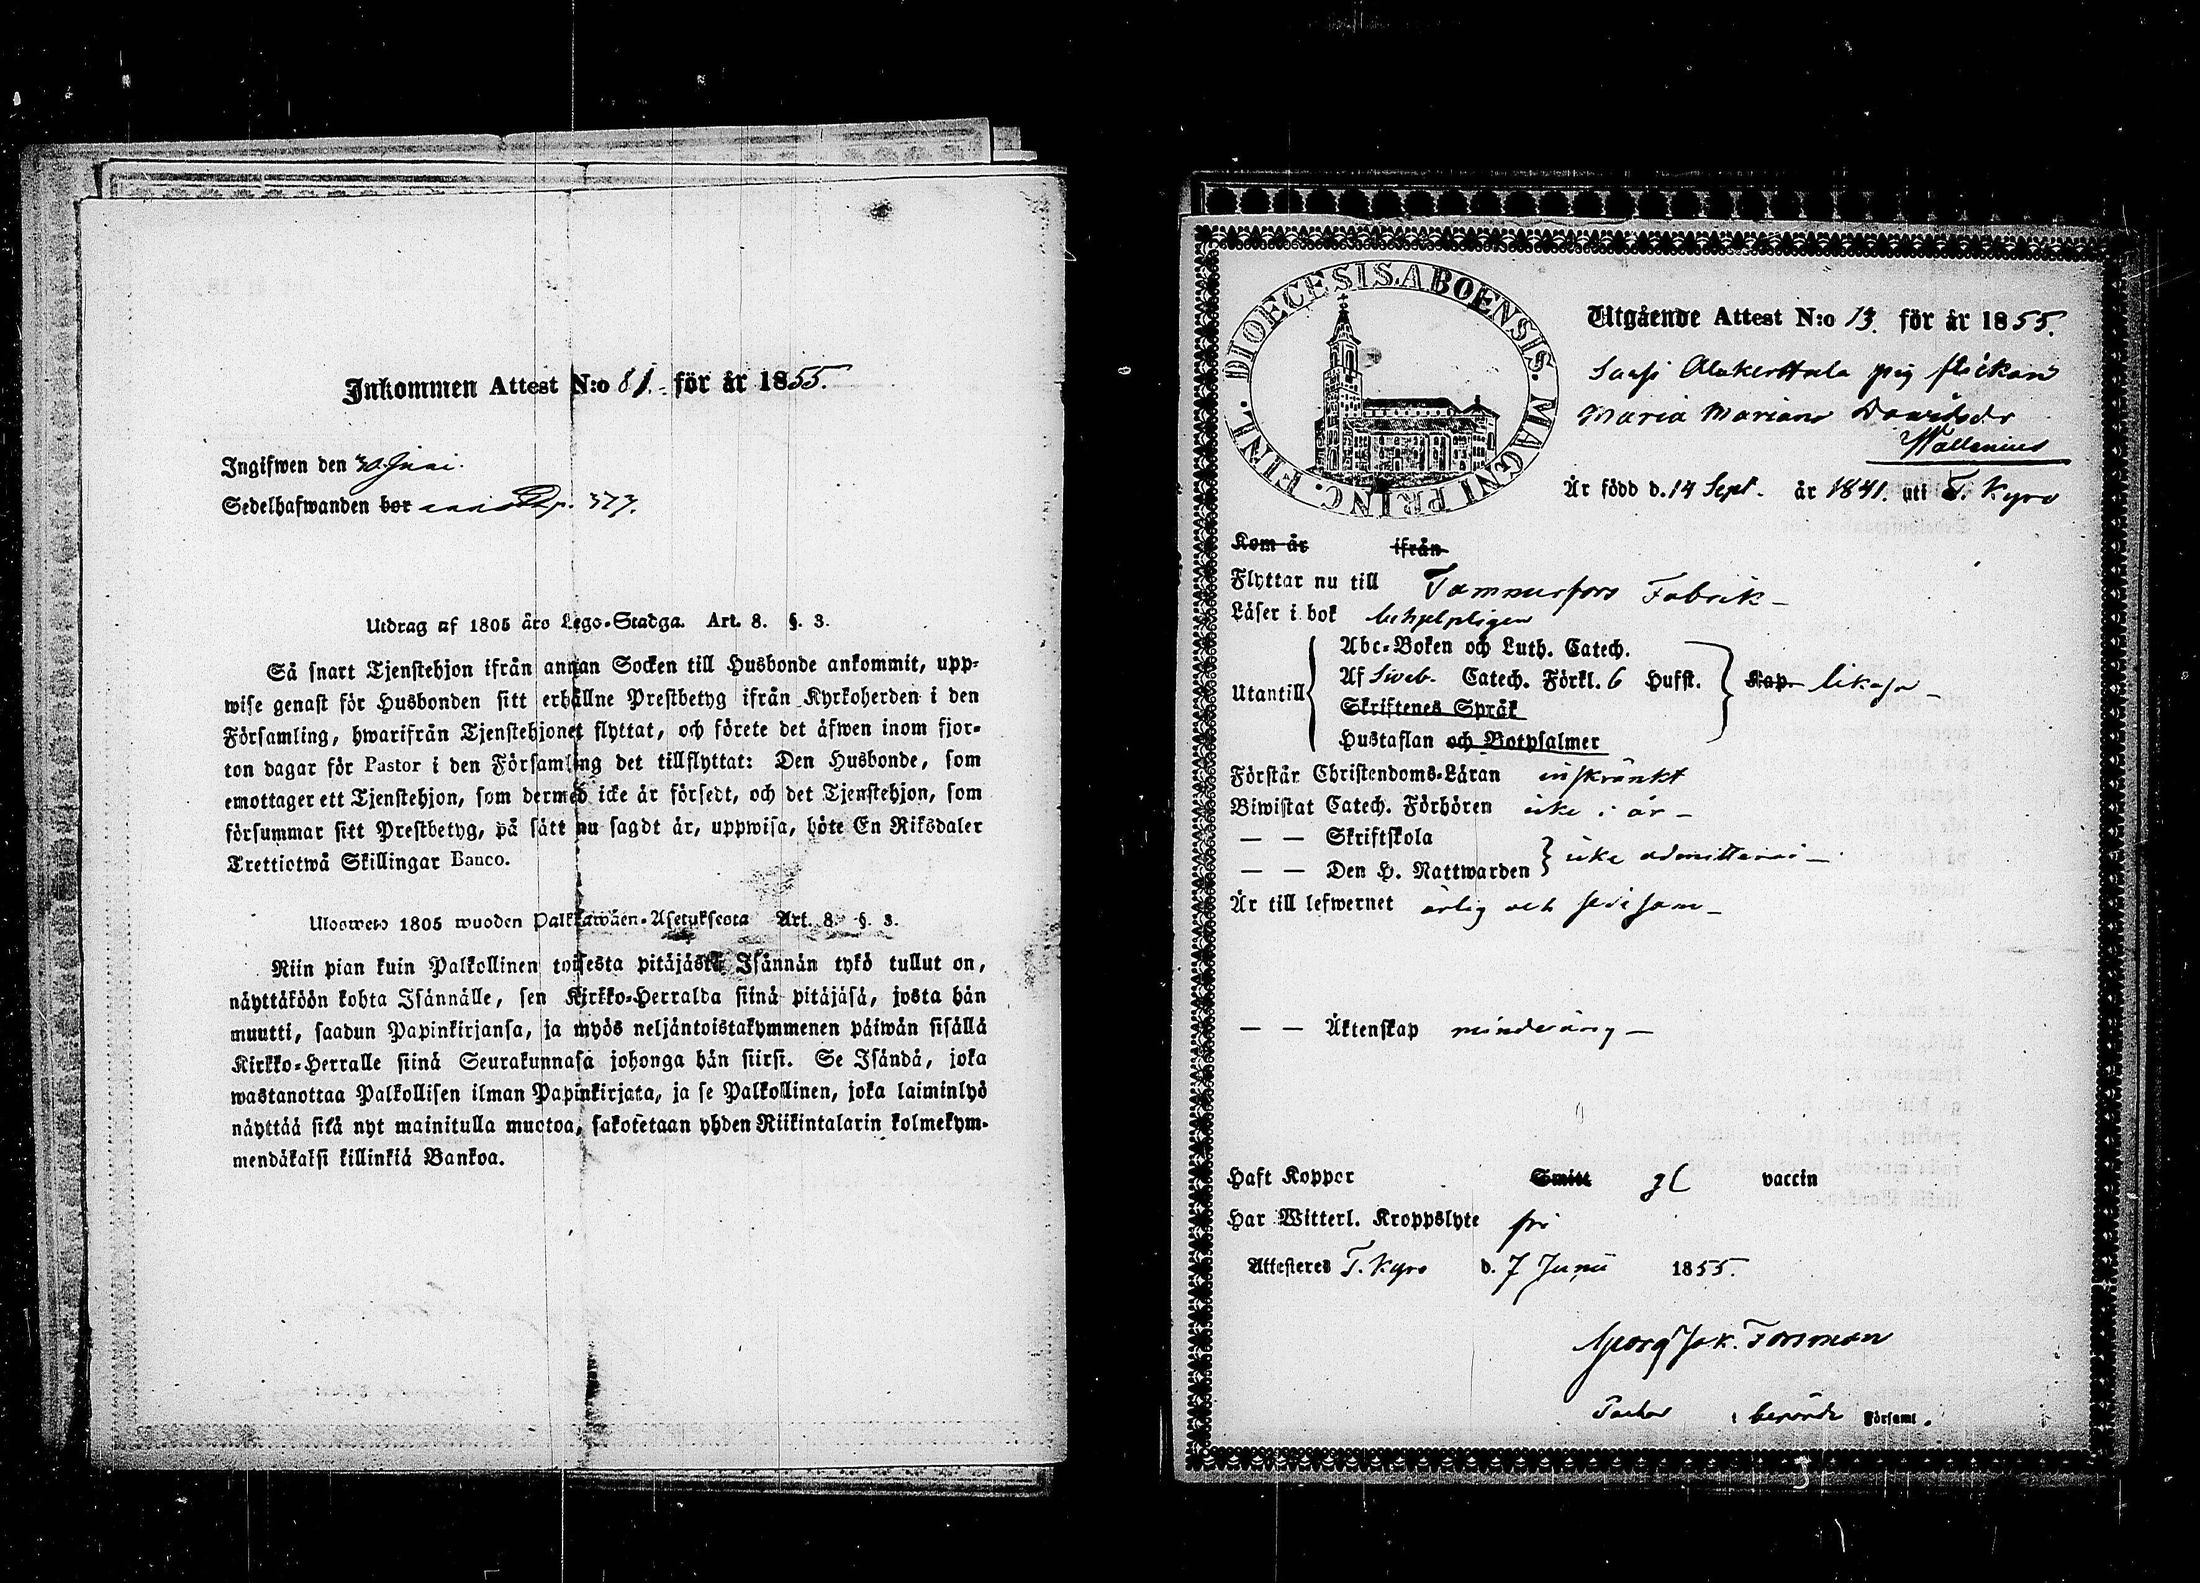 Inkommen Attest N:o 81. för år 1855.
Ingifwen den 30 Juni.
Sedelhafwanden bor 323.
Utdrag af 1805 års Lego-Stadga. Art. 8. §. 3.
Så snart Tjenstehjon ifrån annan Socken till Husbonde ankommit, upp-
wise genast för Husbonden sitt erhållne Prestbetyg ifrån Kyrkoherden i den
Församling, hwarifrån Tjenstehjonet flyttat, och förete det äfwen inom fjor-
ton dagar för Pastor i den Församling det tillflyttat: Den Husbonde, som
emottager ett Tjenstehjon, som dermed icke är försedt, och det Tjenstehjon, som
försummar sitt Prestbetyg, på sätt nu sagdt är, uppwisa, böte En Riksdaler
Trettiotwå Skillingar Banco.
Ulosweto 1805 wuoden Palkkawäen-Asetuksesta Art. 8. §. 3.
Niin pian kuin Palkollinen toisesta pitäjästä Isännän tykö tullut on,
näyttäköön kohta Isännälle, sen Kirkko-Herralda siinä pitäjäsä, josta hän
muutti, saadun Papinkirjansa, ja myös neljäntoistakymmenen päiwän sisällä
Kirkko-Herralle siinä Seurakunnasa johonga hän siirsi. Se Isändä, joka
wastanottaa Palkollisen ilman Papinkirjata, ja se Palkollinen, joka laiminlyö
näyttää sitä nyt mainitulla muotoa, sakotetaan yhden Riikintalarin kolmekym-
mendäkaksi killinkiä Bankoa.
DIOECESIS. ABOENSIS. MAGNI PRINC. FINL.
Utgående Attest N:o 13. för år 1855.
Alakerttula pig flickan
Maria Mariana Davidsdr
Wallenius
Är född d. 14 Sept. år 1841. uti T. Kyro
Kom år ifrån
Flyttar nu till Tammerfors Fabrik -
Läser i bok behjelpligen
Utantill
Abc-Boken och Luth. Catech.
Af Sveb. Catech. Förkl. 6 Hufst.
Skriftenes Språk
Hustaflan och Botpsalmer
Kap. likaså -
Förstår Christendoms-Läran inskränkt
Biwistat Catech. Förhören icke i år -
— — Skriftskola
— — Den H. Nattwarden icke admitterad -
Är till lefwernet ärlig och sedesam -
— — Äktenskap minderårig -
Haft Koppor Smitt gl vaccin
Har Witterl. Kroppslyte fri
Attesteres T. Kyro d. 7 Junii 1855.
Georg Jak. Forsman
Pastor i berörde Församl.